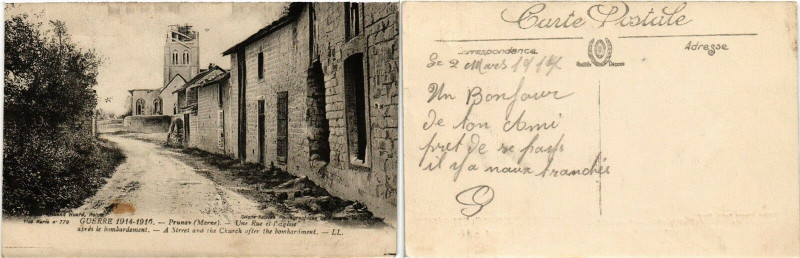 Visa Paris n° 779
GUERRE 1914-1916. — Prunay (Marne). — Une Rue et l'Eglise
après le bombardement. — A Street and the Church after the bombardment. — LL.
Carte Postale
Correspondance
Adresse
Le 2 Mars 1917
Un Bonjour
de ton Ami
pret de se pays
il y a naux tranchés